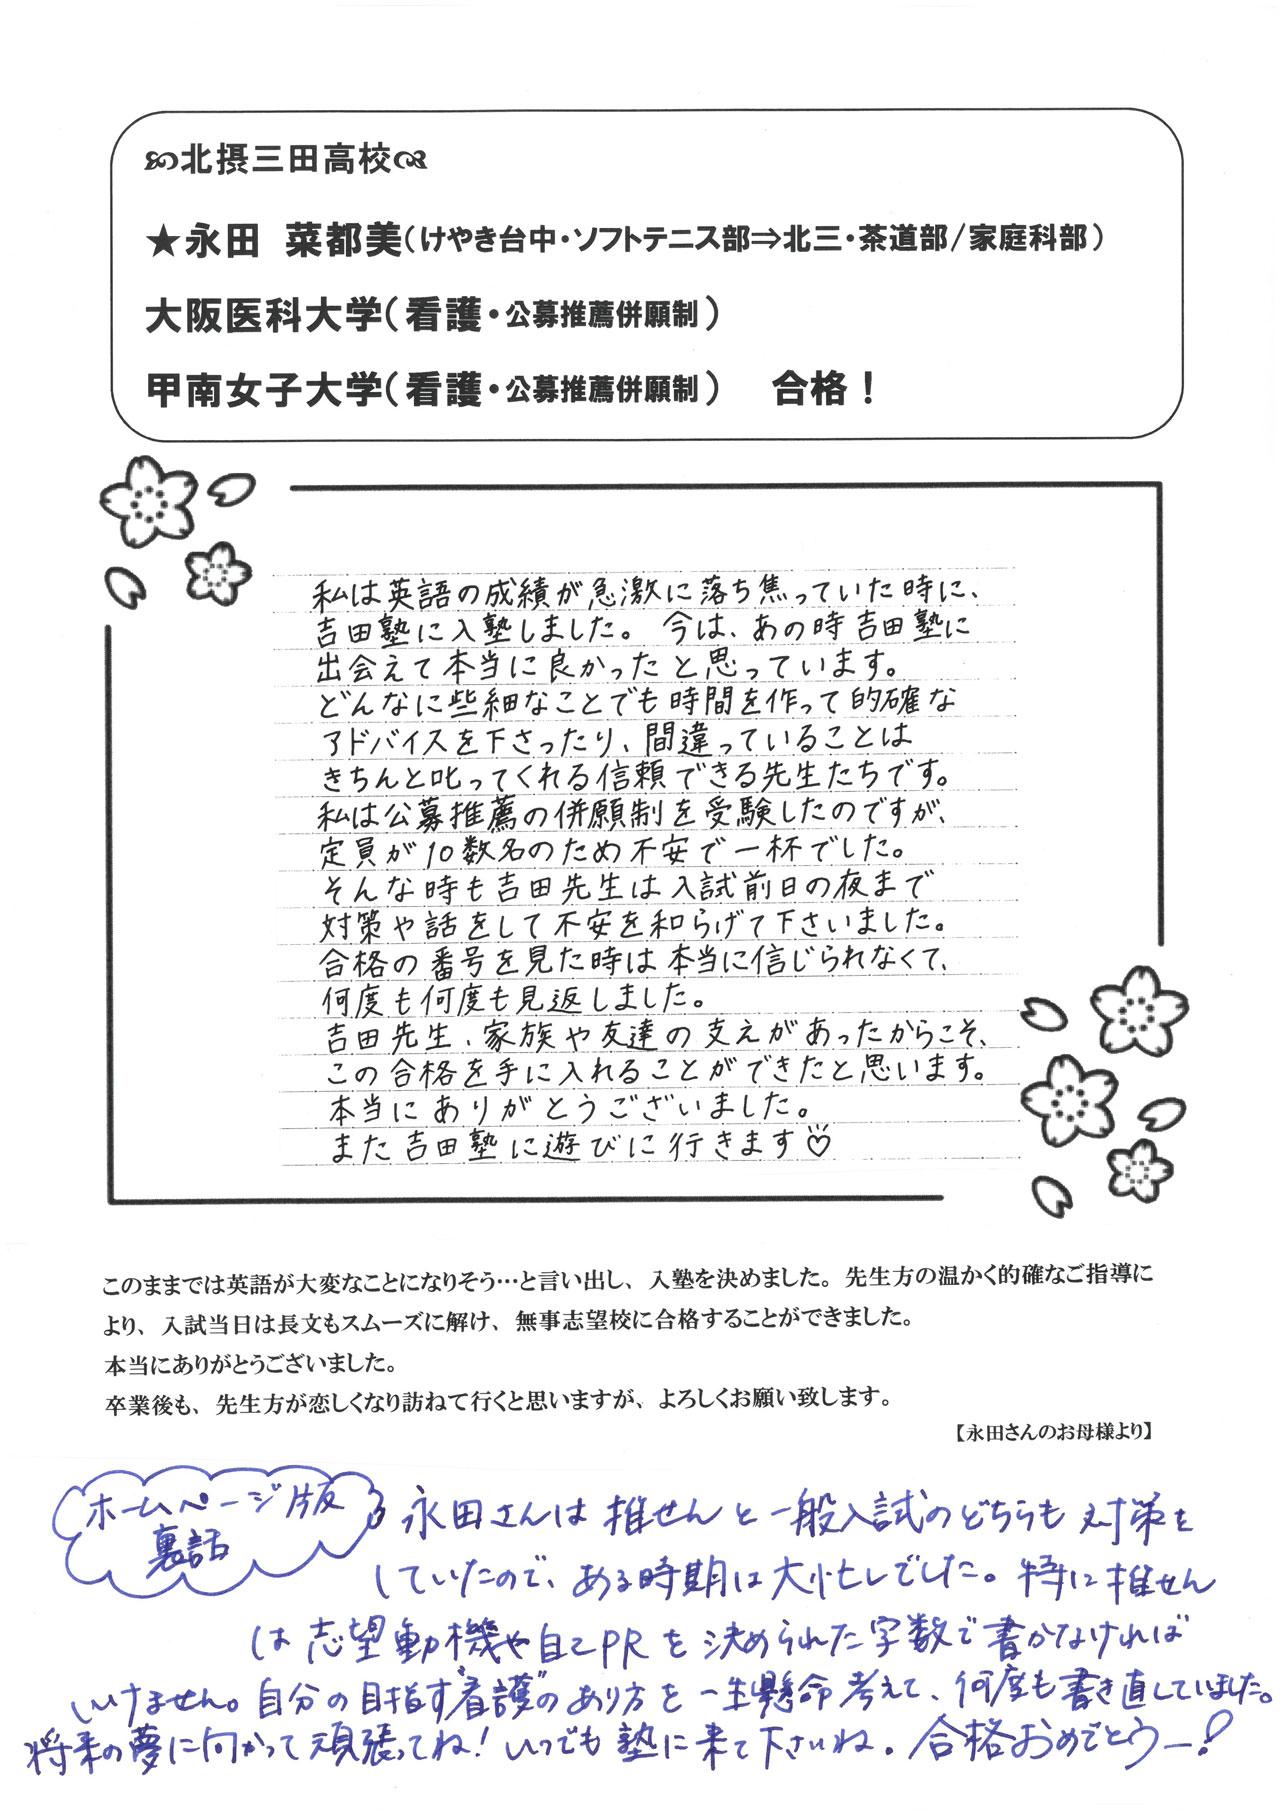 北摂三田高校
★永田 菜都美(けやき台中・ソフトテニス部⇒北三・茶道部/家庭科部)
大阪医科大学(看護・公募推薦併願制)
甲南女子大学(看護・公募推薦併願制) 合格！
私は英語の成績が急激に落ち焦っていた時に、
吉田塾に入塾しました。今は、あの時吉田塾に
出会えて本当に良かったと思っています。
どんなに些細なことでも時間を作って的確な
アドバイスを下さったり、間違っていることは
きちんと叱ってくれる信頼できる先生たちです。
私は公募推薦の併願制を受験したのですが、
定員が10数名のため不安で一杯でした。
そんな時も吉田先生は入試前日の夜まで
対策や話をして不安を和らげて下さいました。
合格の番号を見た時は本当に信じられなくて、
何度も何度も見返しました。
吉田先生、家族や友達の支えがあったからこそ、
この合格を手に入れることができたと思います。
本当にありがとうございました。
また吉田塾に遊びに行きます♡
このままでは英語が大変なことになりそう…と言い出し、入塾を決めました。先生方の温かく的確なご指導に
より、入試当日は長文もスムーズに解け、無事志望校に合格することができました。
本当にありがとうございました。
卒業後も、先生方が恋しくなり訪ねて行くと思いますが、よろしくお願い致します。
【永田さんのお母様より】
ホームページ版
裏話
永田さんは推せんと一般入試のどちらも対策を
していたので、ある時期は大忙しでした。特に推せん
は志望動機や自己PRを決められた字数で書かなければ
いけません。自分の目指す"看護"のあり方を一生懸命考えて、何度も書き直していました。
将来の夢に向かって頑張ってね！いつでも塾に来て下さいね。合格おめでとうー！